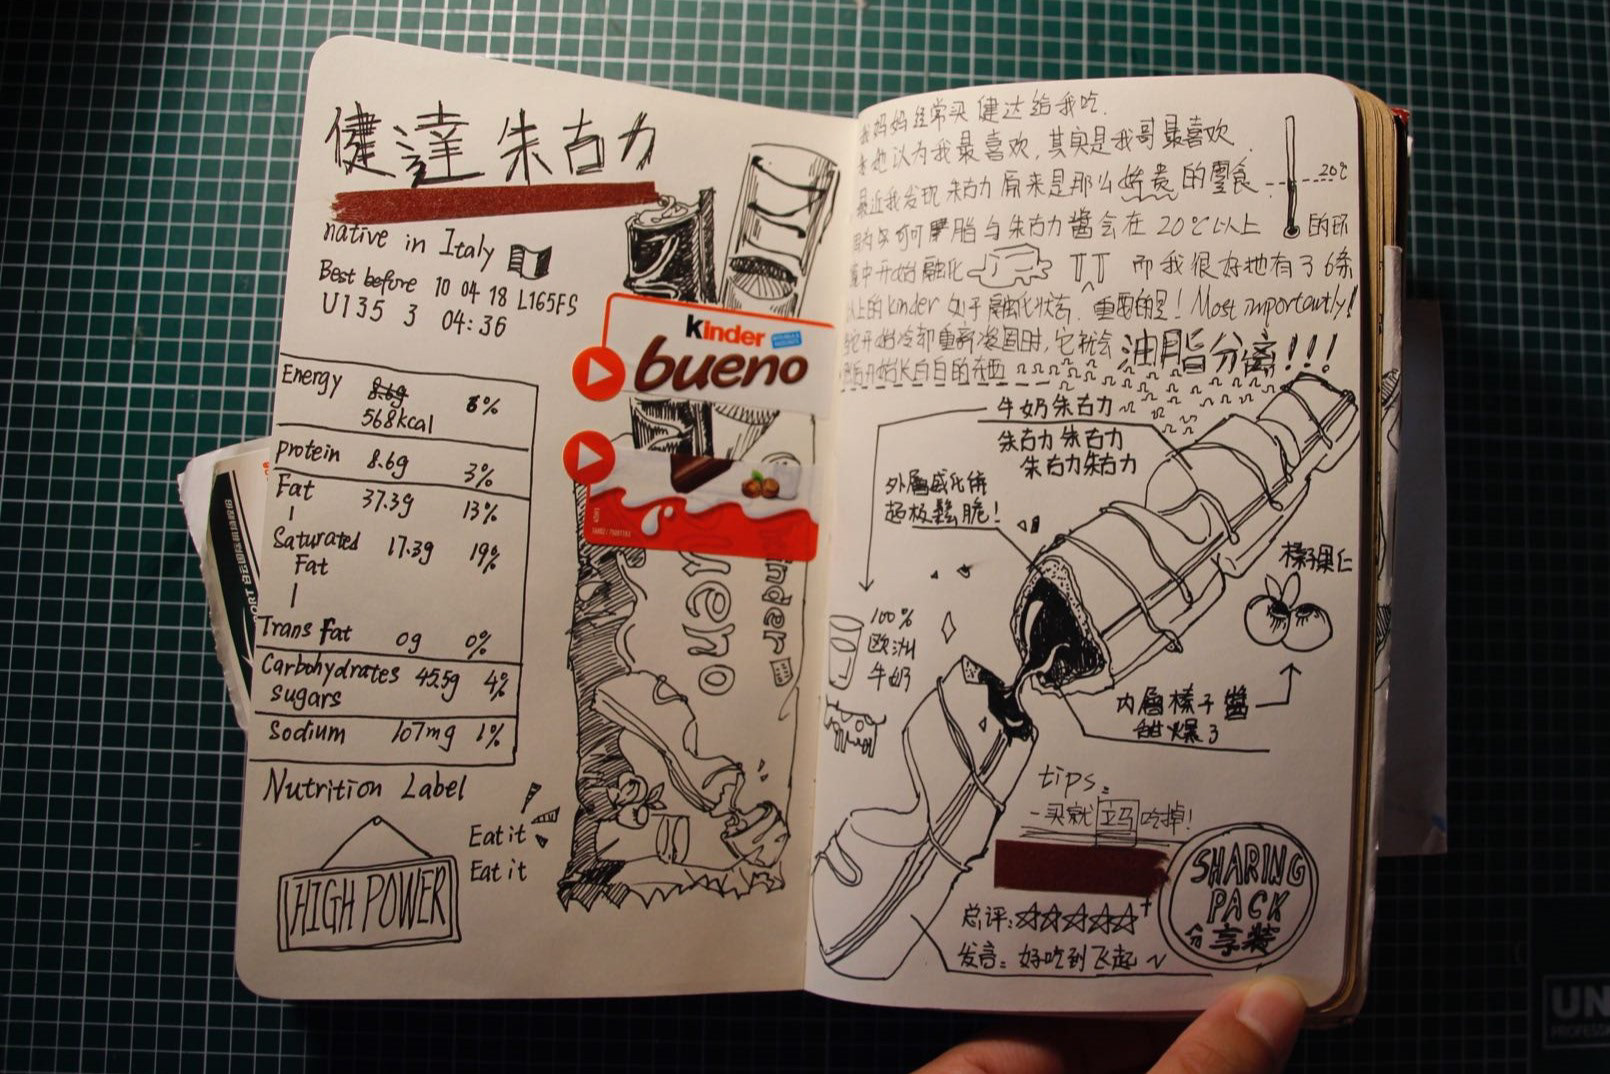 健達 朱古力
native in Italy
Best before 10 04 18 L165FS
U135 3 04:36
Energy 8.6g 6%
568kcal
protein 8.6g 3%
Fat 37.3g 13%
Saturated 17.3g 19%
Fat
Trans Fat 0g 0%
Carbohydrates 45.5g 4%
sugars
Sodium 107mg 1%
Nutrition Label
Eat it
Eat it
HIGH POWER
Kinder
bueno
bueno
kinder
我妈妈经常买健达给我吃.
她认为我最喜欢,其实是我哥最喜欢.
最近我发现朱古力原来是那么娇贵的零食
20℃
因为可可脂与朱古力酱会在20℃以上的环
境中开始融化 TT 而我很好地有了6条
以上的kinder处于融化状态.重要的是! Most importantly!
当它开始冷却重新凝固时,它就会油脂分离!!!
然后开始长白白的东西
牛奶朱古力
朱古力朱古力
朱古力朱古力
外層威化併
超极鬆脆!
榛子果仁
100%
欧洲
牛奶
内層榛子醬
甜爆了
tips:
-买就立马吃掉!
总评:☆☆☆☆☆+
发言:好吃到飞起~
SHARING
PACK
分享装